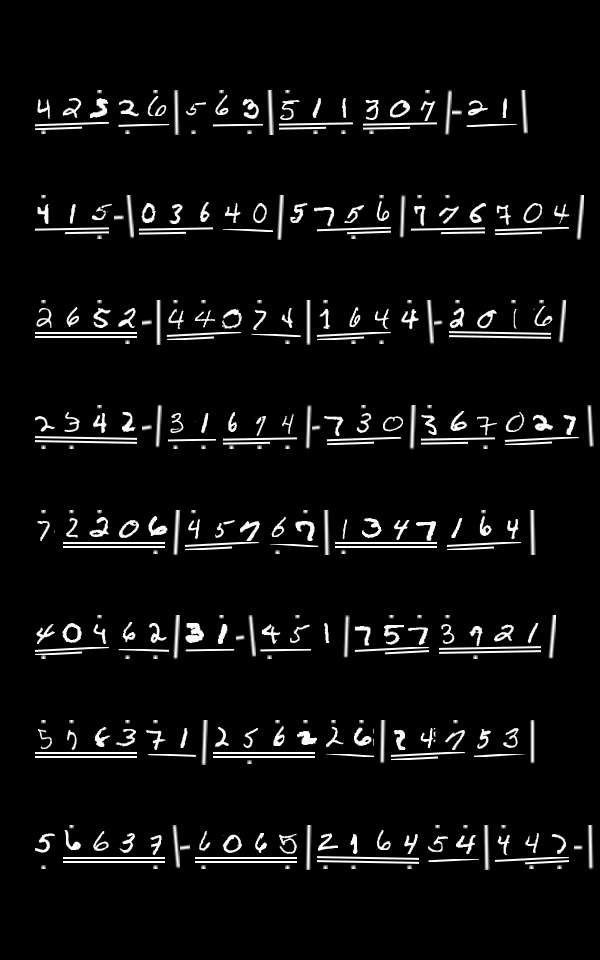 42526|563|511307|-21|
415-|03640|5756|776704|
2652-|44074|1644|-2016|
2342-|31674|-730|367027|
72206|45767|1347|164|
40462|31-|451|757|3721|
576371|256226|24753|
56637|-6065|216454|447-|